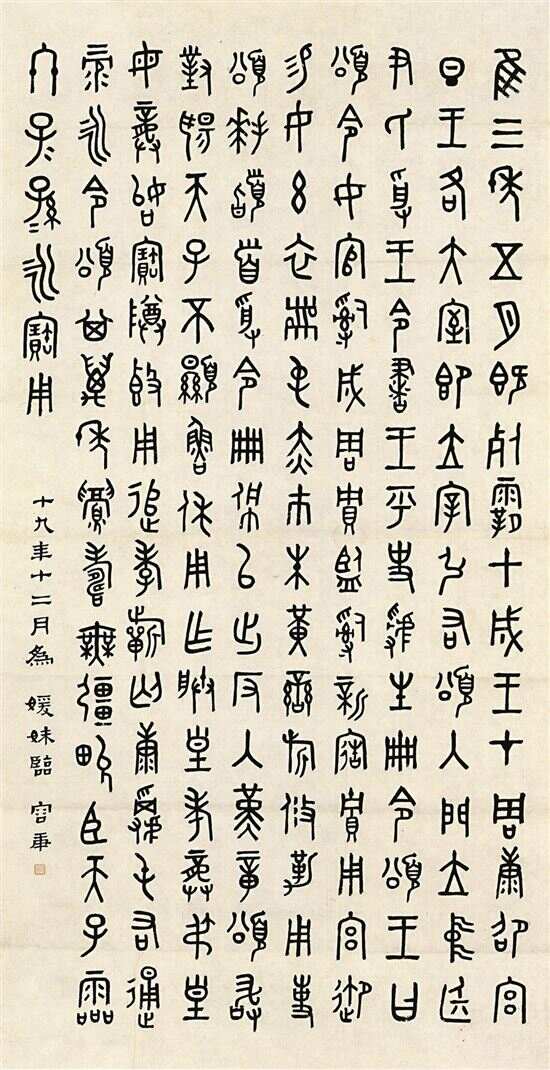 隹三年五月既死霸甲戌王才周康卲宮
旦王各大室即立宰弘右頌入門立中廷
尹氏受王令書王乎史虢生冊令頌王曰
頌令女官𤔲成周貯監𤔲新寤貯用宮御
易女玄衣黹屯赤巿朱黃䜌旂攸勒用事
頌拜䭫首受令冊佩以出反入堇章頌敢
對揚天子不顯魯休用乍朕皇考龏弔皇
母龏姒寶尊𣪘用追孝祈匄康𩁹屯右通
彔永令頌其萬年眉壽無疆畯臣天子霝
冬子=孫=永寶用
十九年十二月為 媛妹臨 容庚